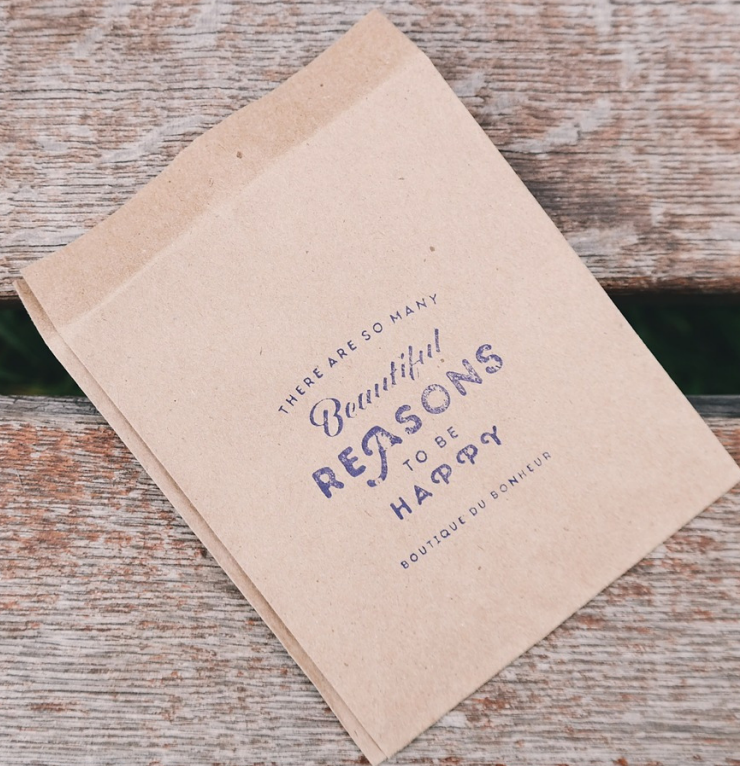 THERE ARE SO MANY
Beautiful
REASONS
TO BE
HAPPY
BOUTIQUE DU BONHEUR